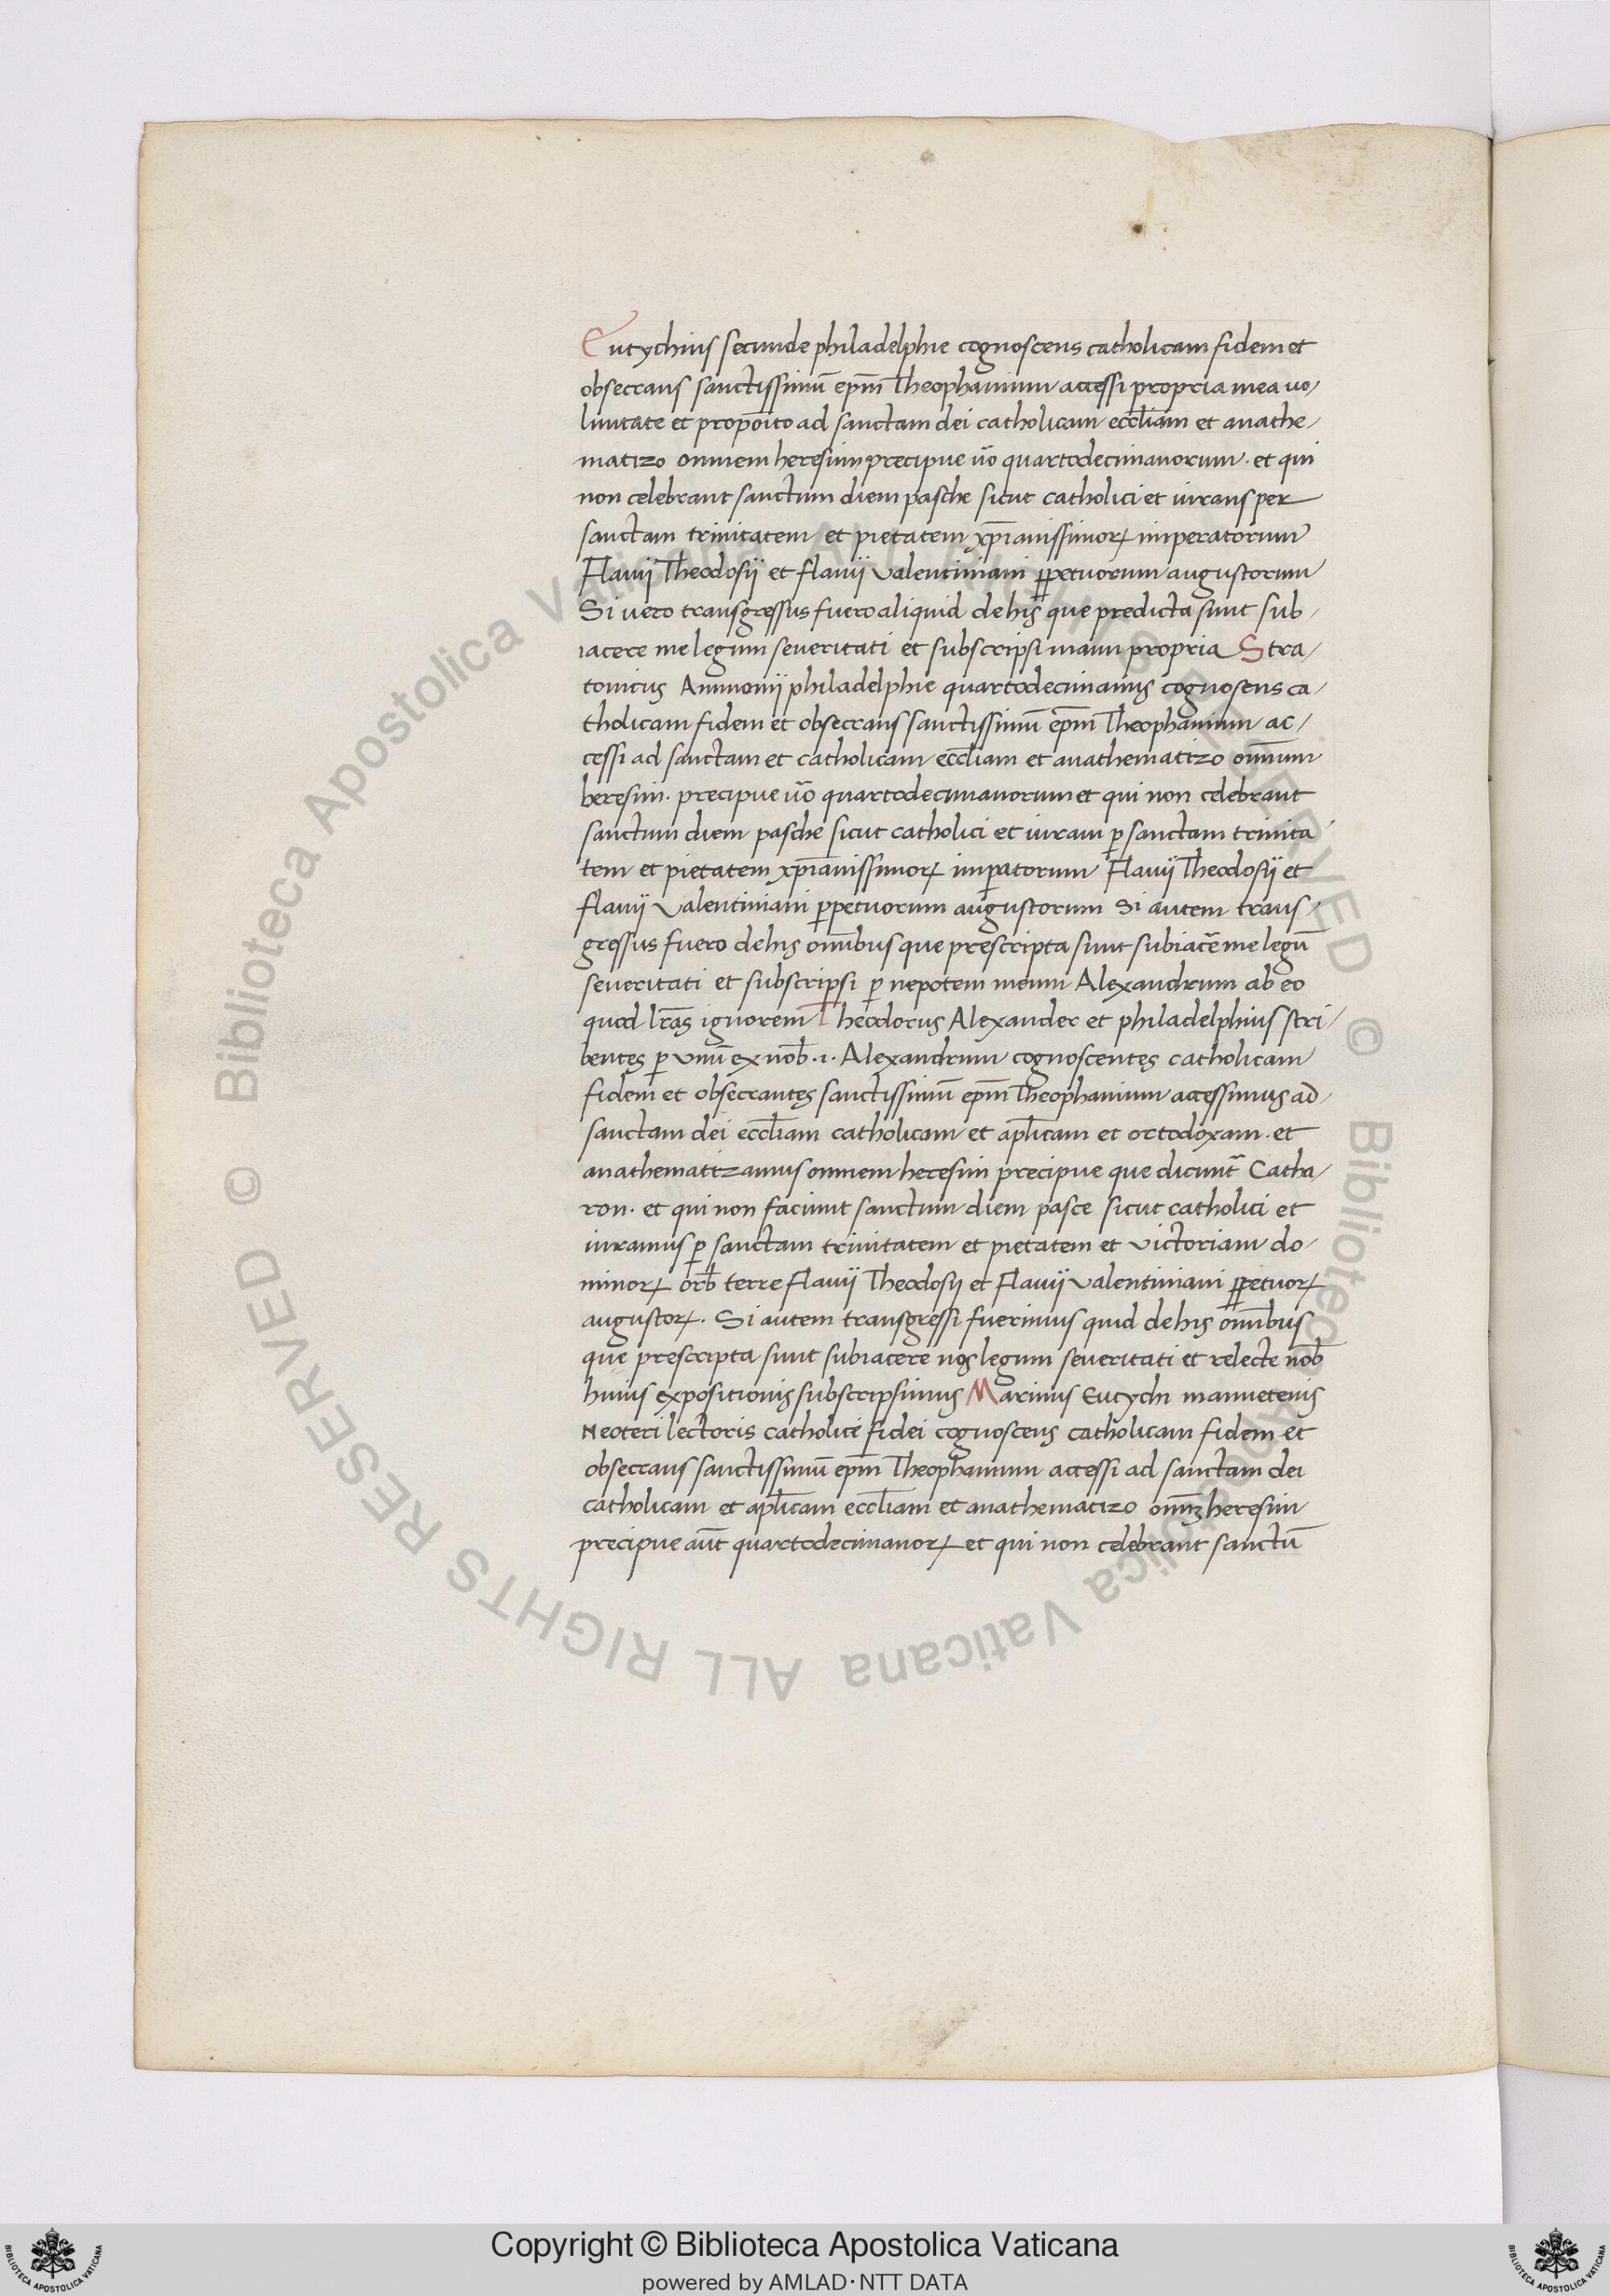 Eutychius secunde philadelphie cognoscens catholicam fidem et
obsecrans sanctissimū ep̄m Theophanium accessi propria mea uo/
luntate et propoīto ad sanctam dei catholicam eccl̄iam et anathe/
matizo omnem heresim precipue ūo quartodecimanorum. et qui
non celebrant sanctum diem pasche sicut catholici et iurans per
sanctam trinitatem et pietatem xp̄ianissimoꝝ imperatorum
Flauij Theodosij et flauij Valentiniani ꝑpetuorum augustorum
Si uero transgressus fuero aliquid de his que predicta sunt sub/
iacere me legum seueritati et subscripsi manu propria Stra/
tonicus Ammonij philadelphie quartodecimanus cognosens ca/
tholicam fidem et obsecrans sanctissimū ep̄m Theophanium ac/
cessi ad sanctam et catholicam eccl̄iam et anathematizo om̄num
heresim. precipue ūo quartodecimanorum et qui non celebrant
sanctum diem pasche sicut catholici et iuram ꝑ sanctam trinita/
tem et pietatem xp̄ianissimoꝝ imꝑatorum Flauij Theodosij et
flauij Valentiniani ꝑpetuorum augustorum Si autem trans/
gressus fuero de his om̄ibus que prescripta sunt subiacēe me legū
seueritati et subscripsi ꝑ nepotem meum Alexandrum ab eo
quod lr̄as ignorem Theodorus Alexander et philadelphius scri/
bentes ꝑ vnū ex nob̄ .i. Alexandrum cognoscentes catholicam
fidem et obsecrantes sanctissimū ep̄m Theophanium accessimus ad/
sanctam dei eccl̄iam catholicam et apl̄icam et ortodoxam. et
anathematizamus omnem heresim precipue que dicunt᷑ Catha/
ron. et qui non faciunt sanctum diem pasce sicut catholici et
iuramus ꝑ sanctam trinitatem et pietatem et victoriam do/
minoꝝ orb̄ terre Flauij Theodosij et Flauij Valentiniani ꝑpetuoꝝ
augustoꝝ. Si autem transgressi fuerimus quid de his om̄ibus
que prescripta sunt subiacere nos legum seueritati et relecte nob̄
huius expositionis subscripsimus Marinus Eutychi manuetenis
Neoteri lectoris catholice fidei cognoscens catholicam fidem et
obsecrans sanctissimū ep̄m Theophanium accessi ad sanctam dei
catholicam et apl̄icam eccl̄iam et anathematizo om̄ꝫ heresim
precipue aūt quartodecimanoꝝ et qui non celebrant sanctū
© Biblioteca Apostolica Vaticana ALL RIGHTS RESERVED © Biblioteca Apostolica Vaticana ALL RIGHTS RESERVED
Copyright © Biblioteca Apostolica Vaticana
powered by AMLAD·NTT DATA
BIBLIOTECA APOSTOLICA VATICANA
BIBLIOTECA APOSTOLICA VATICANA